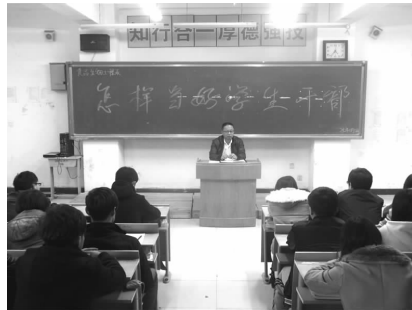 知行合一厚德强技
怎样当好学生干部